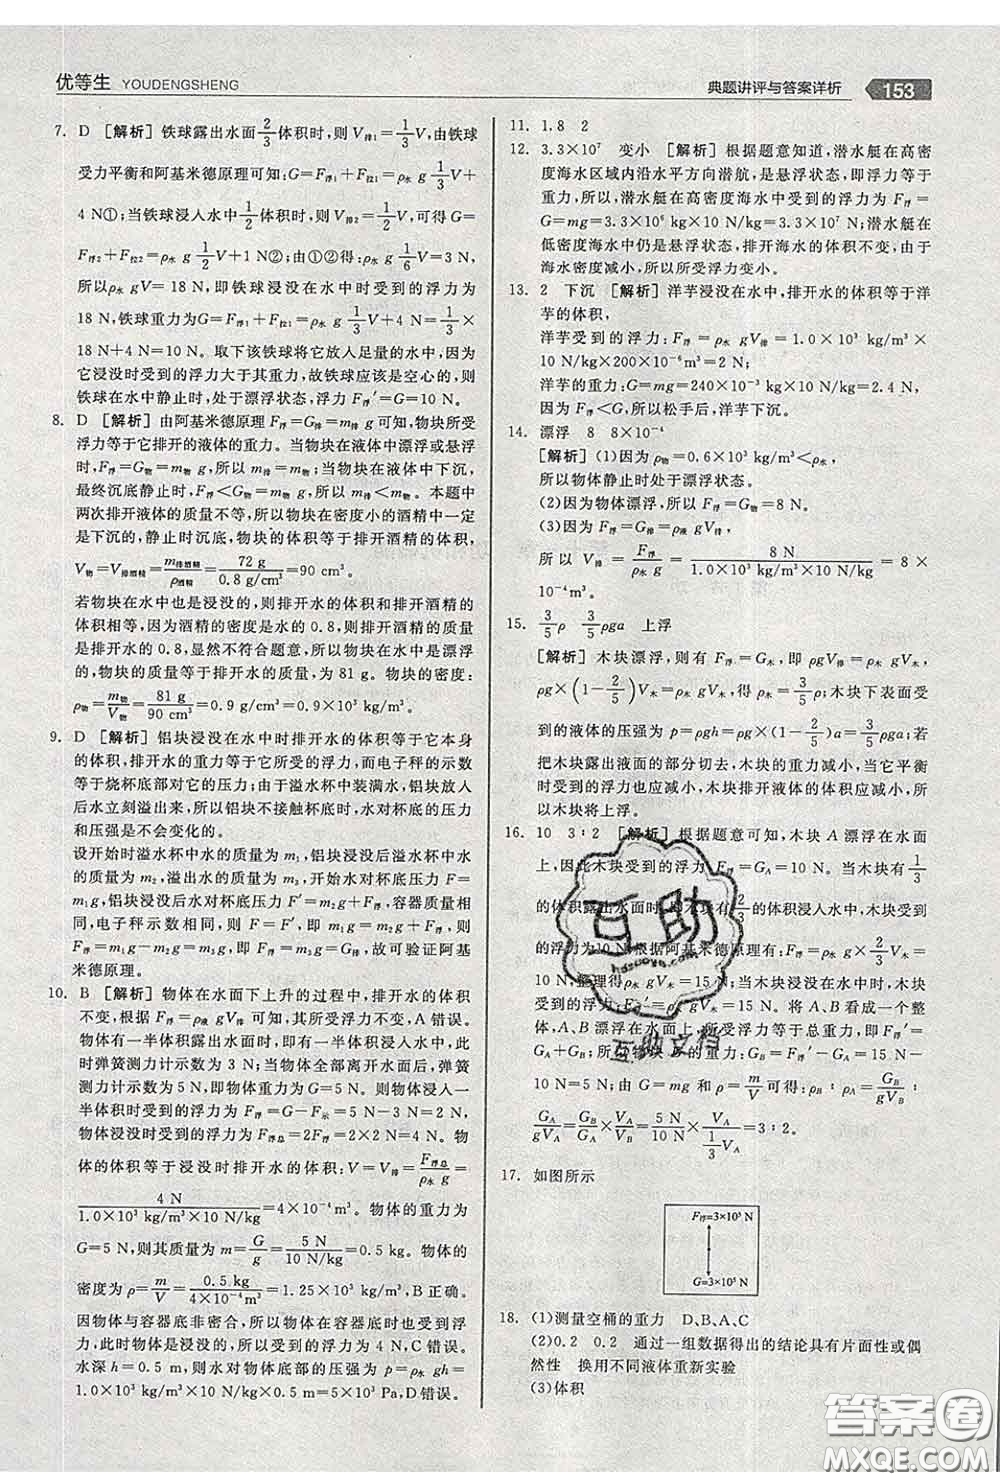 优等生 YOUDENGSHENG
典题讲评与答案详析 153
7. D [解析] 铁球露出水面2/3体积时,则V排1=1/3V,由铁球
受力平衡和阿基米德原理可知:G=F浮1+F拉1=ρ水 g 1/3V
+4 N①;当铁球浸入水中1/2体积时,则V排2=1/2V,可得G=
F浮2+F拉2=ρ水 g 1/2V+1 N②;由①②可得:ρ水 g 1/6V=3 N,
所以ρ水 gV=18 N,即铁球浸没在水中时受到的浮力为
18 N,铁球重力为G=F浮1+F拉1=ρ水 g 1/3V+4 N=1/3×
18 N+4 N=10 N。取下该铁球将它放入足量的水中,因
它浸没时受到的浮力大于其重力,故铁球应该是空心的,则
铁球在水中静止时,处于漂浮状态,浮力F浮′=G=10 N。
8. D [解析] 由阿基米德原理F浮=G排=m排 g可知:物块所受
浮力等于它排开的液体的重力。当物块在液体中漂浮或悬浮
时,F浮=G物=m物 g,所以m排=m物;当物块在液体中下沉,
最终沉底静止时,F浮<G物=m物 g,所以m排<m物。本题中
两次排开液体的质量不等,所以物块在密度小的酒精中一定
是下沉的,静止时沉底,物块的体积等于排开酒精的体积,
V物=V排酒精=m排酒精/ρ酒精=72 g/0.8 g/cm³=90 cm³。
若物块在水中也是浸没的,则排开水的体积和排开酒精的
体积相等,因酒精的密度是水的0.8,则排开酒精的质量是水
的0.8,显然不符合题意,所以物块在水中是漂浮的,所以
物块的质量等于排开水的质量,为81 g。物块的密度:
ρ物=m物/V物=81 g/90 cm³=0.9 g/cm³=0.9×10³ kg/m³。
9. D [解析] 铝块浸没在水中时排开水的体积等于它本身
的体积,而排开水的重力等于它所受的浮力,而电子秤的示数
等于烧杯底部对它的压力;由于溢水杯中装满水,铝块浸入
以后水立刻溢出来,所以铝块不接触杯底时,水对杯底的压力
和压强是不会变化的。
设开始时溢水杯中水的质量为m₁,铝块浸没后溢水杯中水
的质量为m₂,溢出水的质量为m₃,开始水对杯底压力F=
m₁g,铝块浸没后水对杯底压力F′=m₂g+F浮,容器质量相
同,电子秤示数相同,则F=F′,即m₁g=m₂g+F浮,所以
F浮=m₁g-m₂g=m₃g,即F浮=m₃g=G排,故可验证阿基
米德原理。
10. B [解析] 物体在水面下上升的过程中,排开水的体积
不变,根据F浮=ρ液 gV排可知,其所受浮力不变,A错误。
物体有一半体积露出水面时,即有一半体积浸没在水中,
此时弹簧测力计示数为3 N;当物体全部离开水面后,弹簧
测力计示数为5 N,即物体重力为G=5 N。则物体浸入一
半体积时受到的浮力F浮=G-F示=5 N-3 N=2 N。物
体浸没时受到的浮力为F浮总=2F浮=2×2 N=4 N。物
体的体积等于浸没时排开水的体积:V=V排=F浮总/ρ水 g=
4 N/1.0×10³ kg/m³×10 N/kg=4×10⁻⁴ m³。物体的重力为
G=5 N,则其质量为m=G/g=5 N/10 N/kg=0.5 kg。物体的
密度为ρ=m/V=0.5 kg/4×10⁻⁴ m³=1.25×10³ kg/m³,B正确。
因为物体与容器底非密合,所以物体在水中时受到水的浮
力,此时物体是浸没的,所以受到的浮力为4 N,C错误。
水深h=0.5 m,则水对物体底部的压强为p=ρ水 gh=
1.0×10³ kg/m³×10 N/kg×0.5 m=5×10³ Pa,D错误。
11. 1.8 2
12. 3.3×10⁷ 变小 [解析] 根据题意知道,潜水艇在高密
度海水区域内沿水平方向潜航,是悬浮状态,即浮力等于
重力,所以,潜水艇在高密度海水中受到的浮力为F浮=
G=mg=3.3×10⁶ kg×10 N/kg=3.3×10⁷ N;潜水艇在
低密度海水中仍是悬浮状态,排开海水的体积不变,由于
海水密度减小,所以所受浮力变小。
13. 2 下沉 [解析] 洋芋浸没在水中,排开水的体积等于洋
芋的体积,
洋芋受到的浮力:F浮=ρ水 gV排=1.0×10³ kg/m³×
10 N/kg×200×10⁻⁶m³=2 N,
洋芋的重力:G=mg=240×10⁻³ kg×10 N/kg=2.4 N,
因为F浮<G,所以松手后,洋芋下沉。
14. 漂浮 8 8×10⁻⁴
[解析] (1)因为ρ物=0.6×10³ kg/m³<ρ水,
所以物体静止时处于漂浮状态。
(2)因为物体漂浮,所以F浮=G物=8 N。
(3)因为F浮=G排=ρ液 gV排,
所以V排=F浮/ρ水 g=8 N/1.0×10³ kg/m³×10 N/kg=8×
10⁻⁴m³。
15. 3/5ρ 3/5ρga 上浮
[解析] 木块漂浮,则有F浮=G木,即ρgV排=ρ木 gV木,
ρg×(1-2/5)V木=ρ木 gV木,得ρ木=3/5ρ;木块下表面受
到的液体的压强为p=ρgh=ρg×(1-2/5)a=3/5ρga;若
把木块露出液面的部分切去,木块的重力减小,而这时所
受到的浮力也应减小,木块排开液体的体积也将减小,所
以木块将上浮。
16. 10 3∶2 [解析] 根据题意可知,木块A漂浮在水面
上,因此木块受到的浮力F浮=GA=10 N。当木块有1/3
的体积露出水面时,则木块有2/3的体积浸入水中,木块受到
的浮力为10 N,根据阿基米德原理有:F浮=ρ水 g×2/3V木=
10 N,整理得ρ水 gV木=15 N;当木块浸没在水中时,木块
受到的浮力F浮′=ρ水 gV木=15 N。将A、B看成一个整
体,A、B悬浮在水中时,浮力等于总重力,即F浮′=
GA+GB,所以物块B的重力:GB=F浮′-GA=15 N-
10 N=5 N;由G=mg和ρ=m/V可得:ρB∶ρA=GB/gVB∶
GA/gVA=GB/GA×VA/VB=5 N/10 N×VA/(1/3VA)=3∶2。
17. 如图所示
F浮=3×10⁵ N
G=3×10⁵ N
18. (1)测量空桶的重力 D、B、A、C
(2)0.2 0.2 通过一组数据得出的结论具有片面性或偶
然性 换用不同液体重新实验
(3)体积
互助
hdzuoye.com
互助文档
答案圈
MXQE.COM